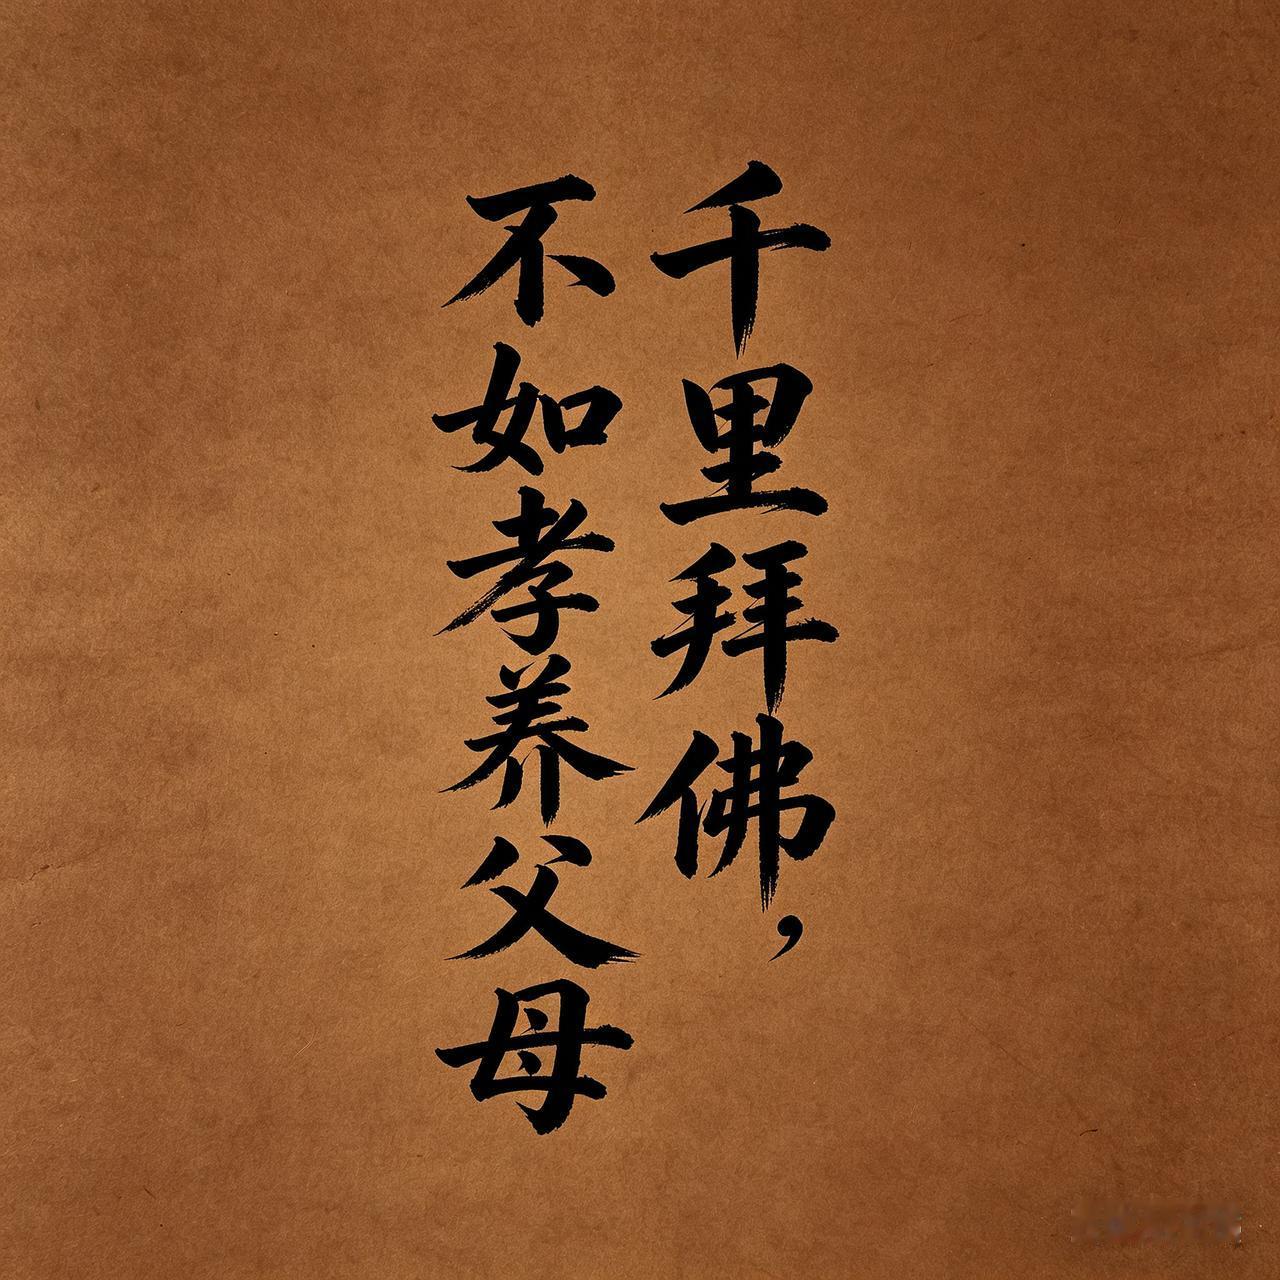 千里拜佛，
不如孝养父母